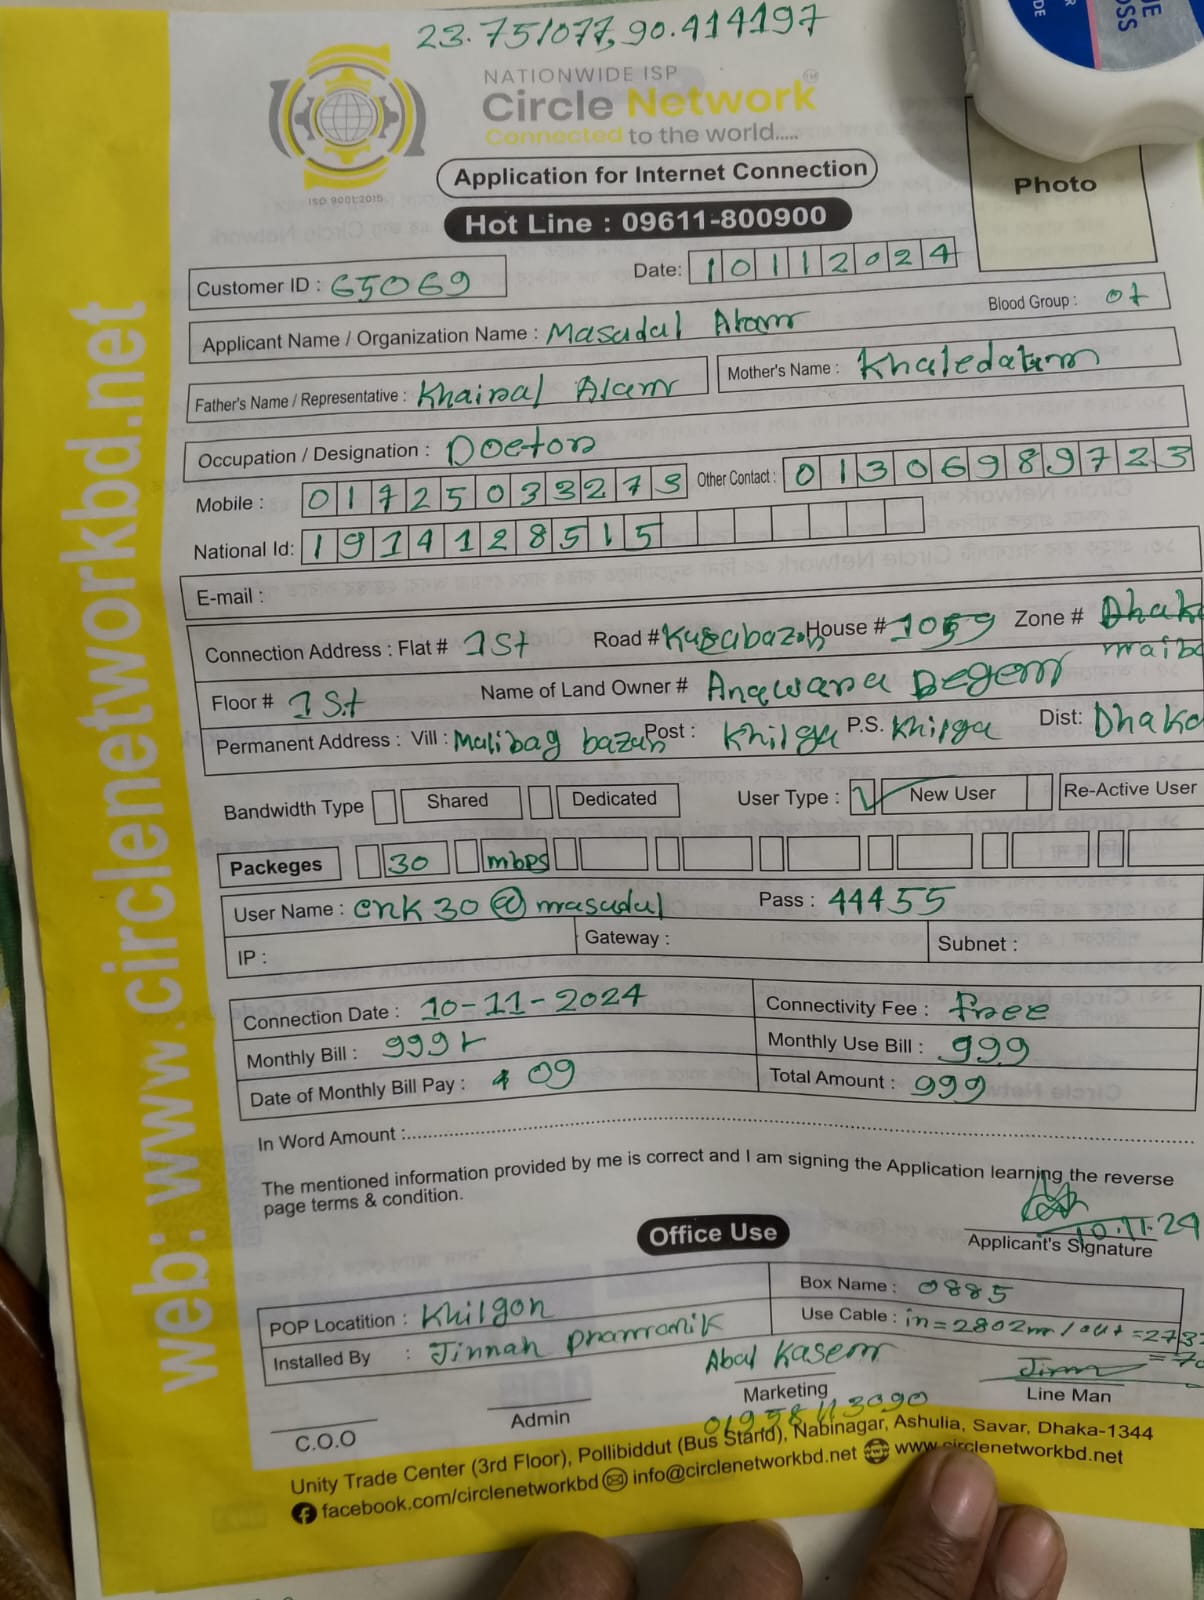 23.751077,90.414197
NATIONWIDE ISP
Circle Network
Connected to the world.....
ISO 9001:2015
Application for Internet Connection
Photo
Hot Line : 09611-800900
Customer ID : 65069 Date: 10112024
Applicant Name / Organization Name : Masudul Alam Blood Group : o+
Father's Name / Representative : Khairul Alam Mother's Name : Khaledatum
Occupation / Designation : Doctor
Mobile : 01725033273 Other Contact : 01306989723
National Id: 1914128515
E-mail :
Connection Address : Flat # 1st Road # House # 1059 Zone # Dhak
Floor # 1st Name of Land Owner # Anawara Begem
Permanent Address : Vill : Malibag bazar Post : Khilga P.S. Khilga Dist: Dhaka
Bandwidth Type Shared Dedicated User Type : New User Re-Active User
Packeges 30 mbps
User Name : cnk30@masudul Pass : 44455
IP : Gateway : Subnet :
Connection Date : 10-11-2024 Connectivity Fee : free
Monthly Bill : 999 Monthly Use Bill : 999
Date of Monthly Bill Pay : 09 Total Amount : 999
In Word Amount :
The mentioned information provided by me is correct and I am signing the Application learning the reverse
page terms & condition.
10.11.24
Applicant's Signature
Office Use
POP Locatition : Khilgon Box Name : 0885
Installed By : Jinnah pramranik Use Cable : in=2802m/out=273
Abal Kasem
C.O.O Admin Marketing Line Man
01958113090
Unity Trade Center (3rd Floor), Pollibiddut (Bus Stand), Nabinagar, Ashulia, Savar, Dhaka-1344
facebook.com/circlenetworkbd info@circlenetworkbd.net www.circlenetworkbd.net
web: www.circlenetworkbd.net